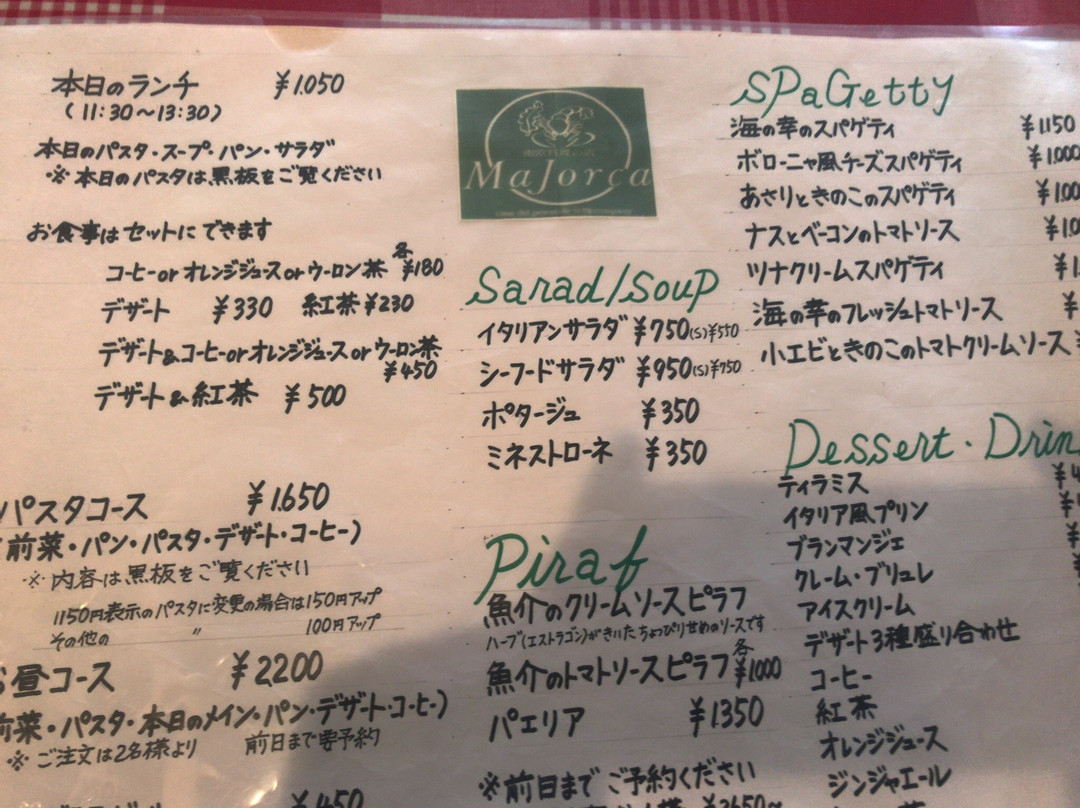 本日のランチ ¥1.050
(11:30〜13:30)
本日のパスタ・スープ・パン・サラダ
※本日のパスタは黒板をご覧ください
お食事はセットにできます
コーヒーorオレンジジュースorウーロン茶 各¥180
デザート ¥330 紅茶¥230
デザート&コーヒーorオレンジジュースorウーロン茶
¥450
デザート&紅茶 ¥500
パスタコース ¥1.650
前菜・パン・パスタ・デザート・コーヒー)
※内容は黒板をご覧ください
1150円表示のパスタに変更の場合は150円アップ
その他の 〃 100円アップ
昼コース ¥2200
前菜・パスタ・本日のメイン・パン・デザート・コーヒー)
※ご注文は2名様より 前日まで要予約
¥450
Majorca
Sarad/Soup
イタリアンサラダ ¥750(S)¥550
シーフードサラダ ¥950(S)¥750
ポタージュ ¥350
ミネストローネ ¥350
Piraf
魚介のクリームソースピラフ
ハーブ(エストラゴン)がきいたちょっぴり甘めのソースです
魚介のトマトソースピラフ 各¥1000
パエリア ¥1350
※前日までご予約ください
¥2650〜
SPaGetty
海の幸のスパゲティ ¥1150
ボローニャ風チーズスパゲティ ¥1.000
あさりときのこのスパゲティ
ナスとベーコンのトマトソース
ツナクリームスパゲティ
海の幸のフレッシュトマトソース
小エビときのこのトマトクリームソース
Dessert・Drin
ティラミス
イタリア風プリン
ブランマンジェ
クレーム・ブリュレ
アイスクリーム
デザート3種盛り合わせ
コーヒー
紅茶
オレンジジュース
ジンジャエール